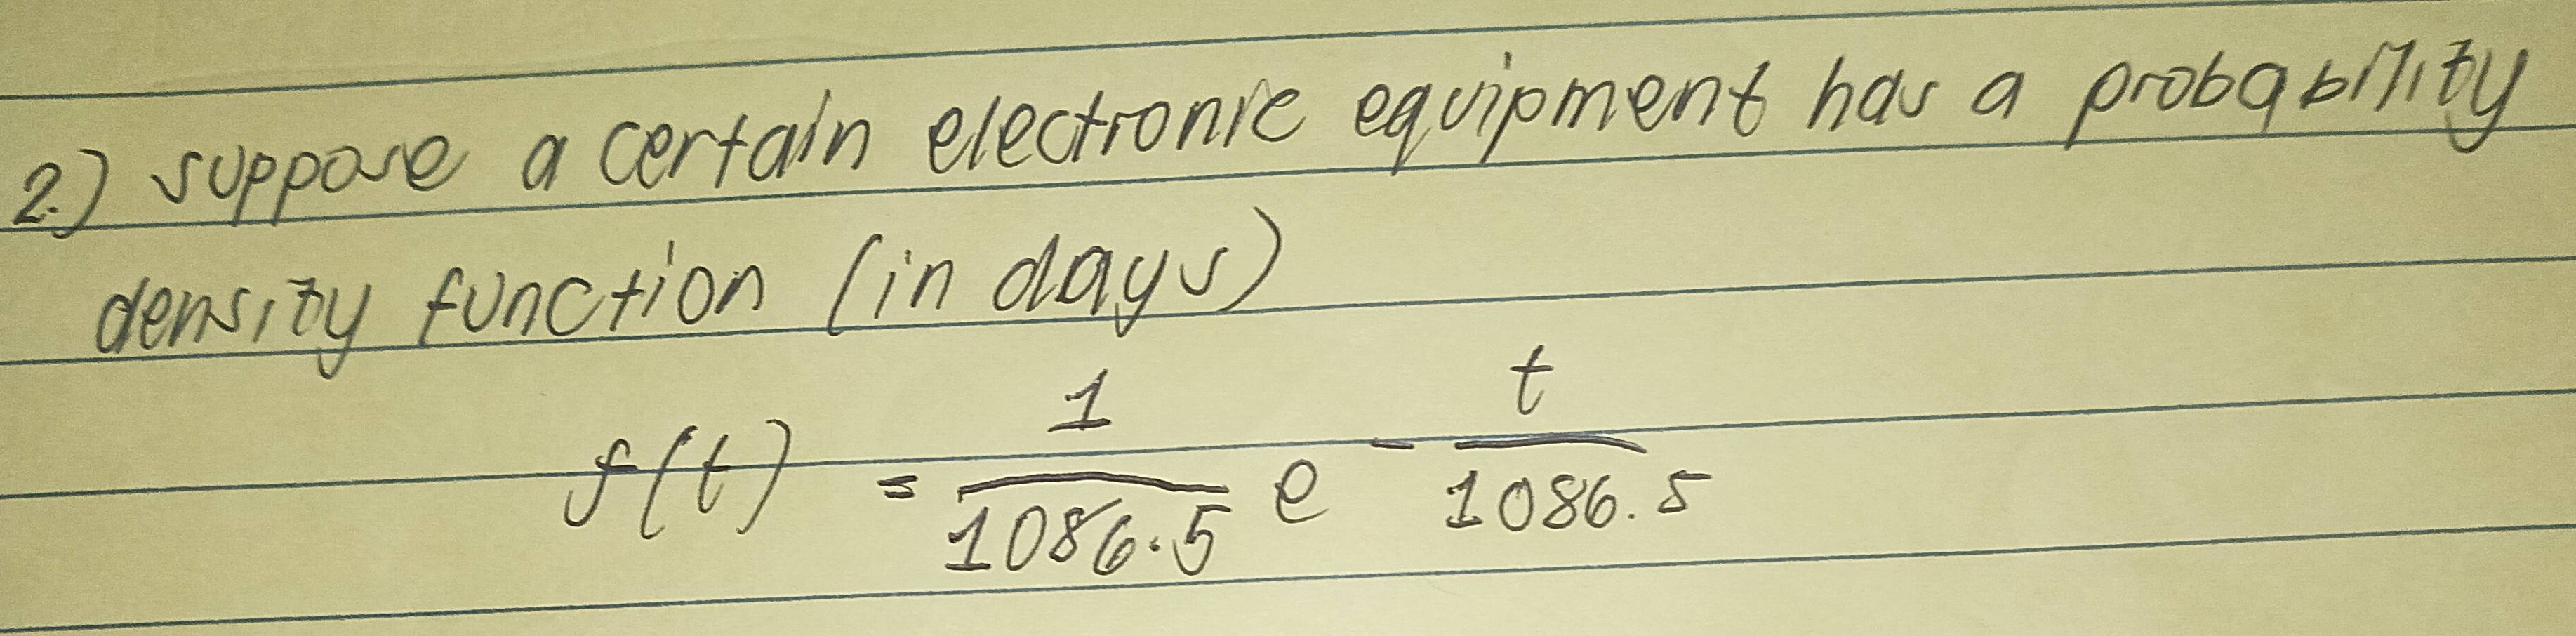 2.) suppose a certain electronic equipment has a probability
density function (in days)
f(t) = 1/1086.5 e^-t/1086.5